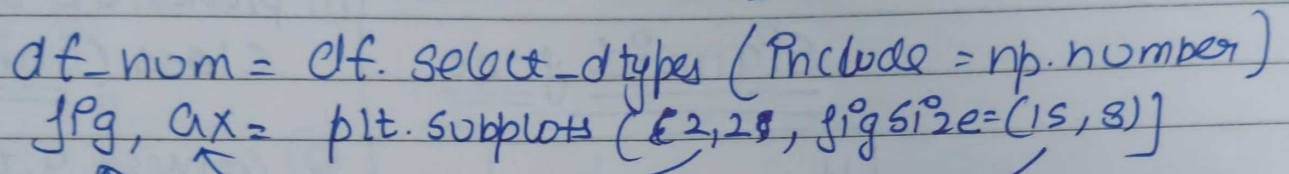 df_num = df. select_dtypes (include = np.number)
fig, ax = plt. subplots (2,2, figsize=(15,8)]